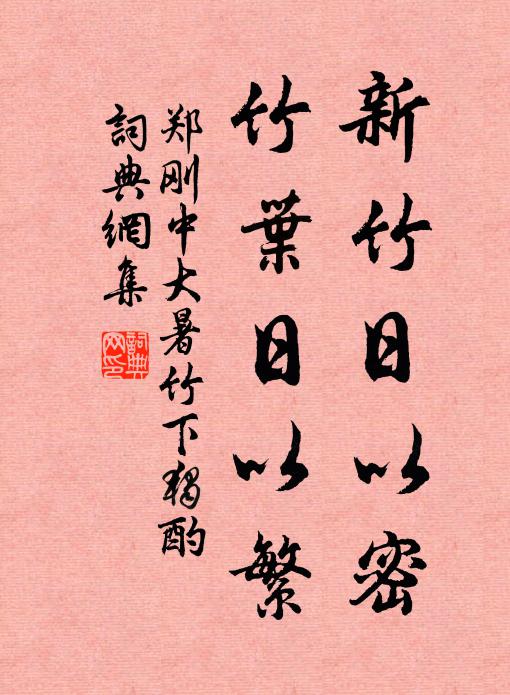 新竹日以密
竹葉日以繁
郑刚中大暑竹下独酌
詞典網集
詞典
网印